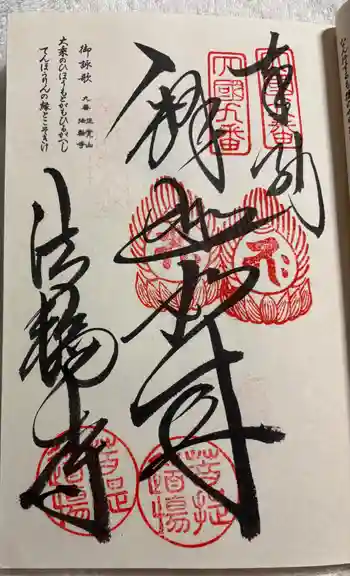 奉納
四國九番
釋迦如来
法輪寺
菩提道場
菩提道場
御詠歌 九番 正覚山 法輪寺
大乗のひほうもとがもひるがへし
てんぼうりんの縁とこそきけ